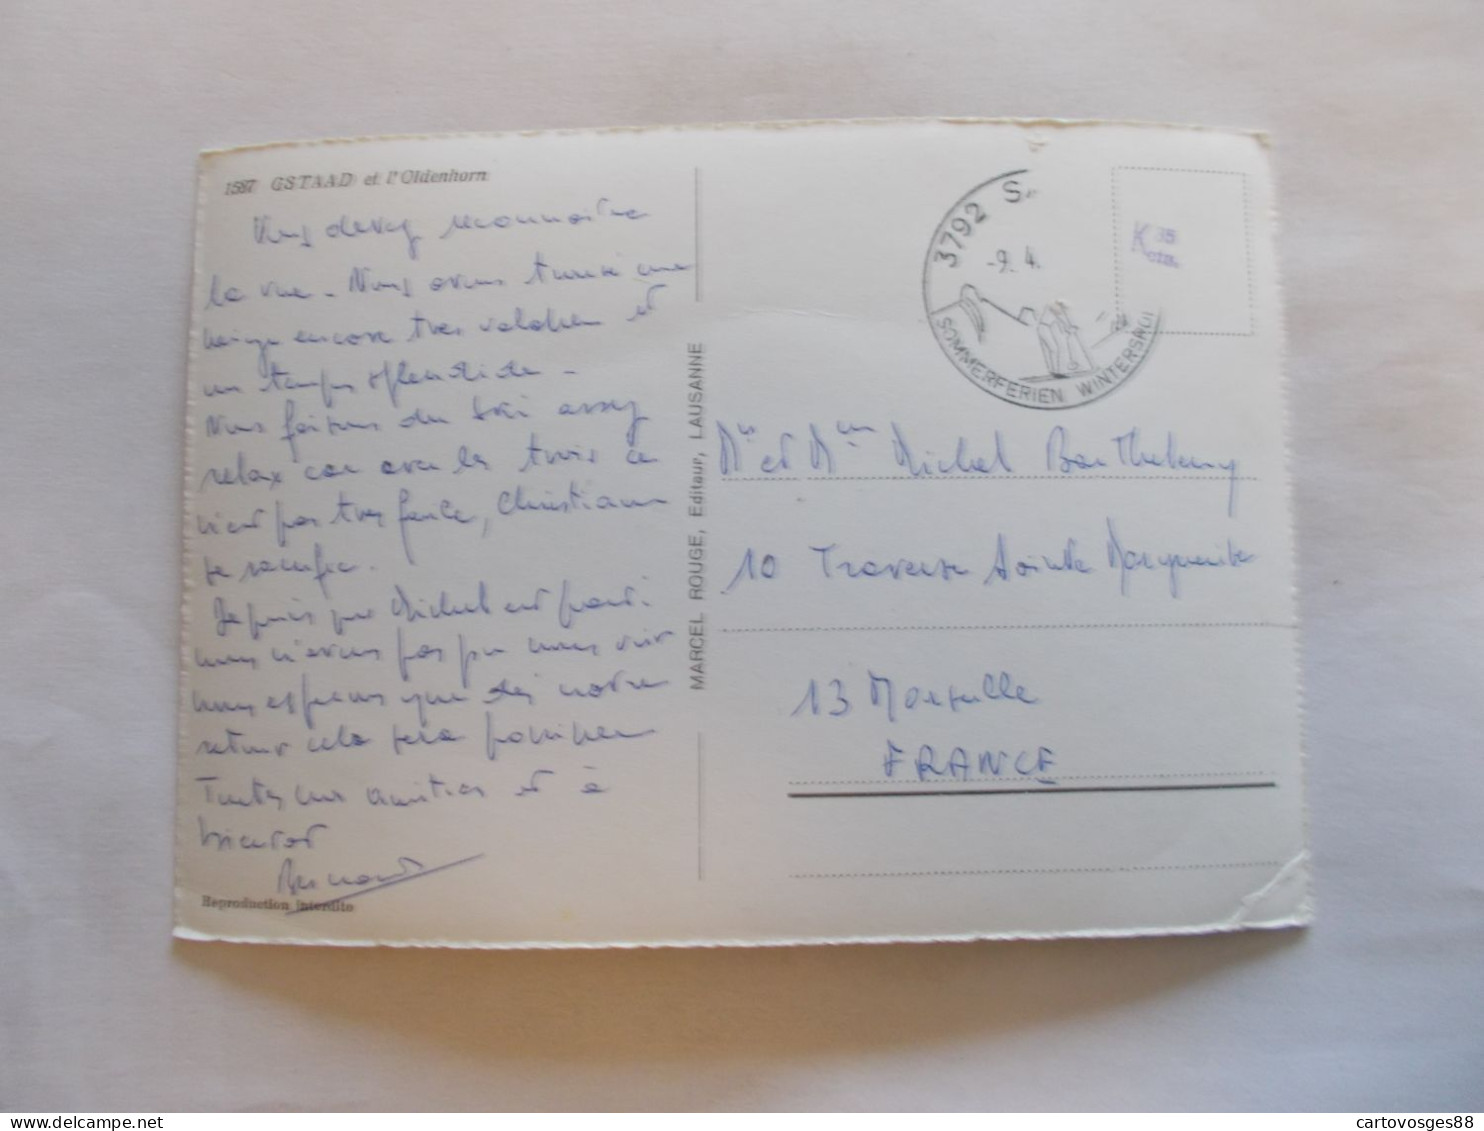 1587 GSTAAD et l'Oldenhorn
Vous devez reconnaitre
la vue - Nous avons trouvé une
neige encore très valable et
un temps splendide -
Nous faisons du ski assez
relax car avec les trois ce
n'est pas très facile, Christiane
se sacrifie.
Depuis que Michel est parti
nous n'avons pas pu vous voir
nous espérons que dès notre
retour cela sera possible
Toutes nos amitiés et à
bientot
Bernard
Reproduction interdite
MARCEL ROUGE, Editeur, LAUSANNE
3792 S
-9. 4.
SOMMERFERIEN WINTERSKI
K 35
cts.
Mr et Mme Michel Barthelemy
10 Traverse Sainte Marguerite
13 Marseille
FRANCE
cartovosges88